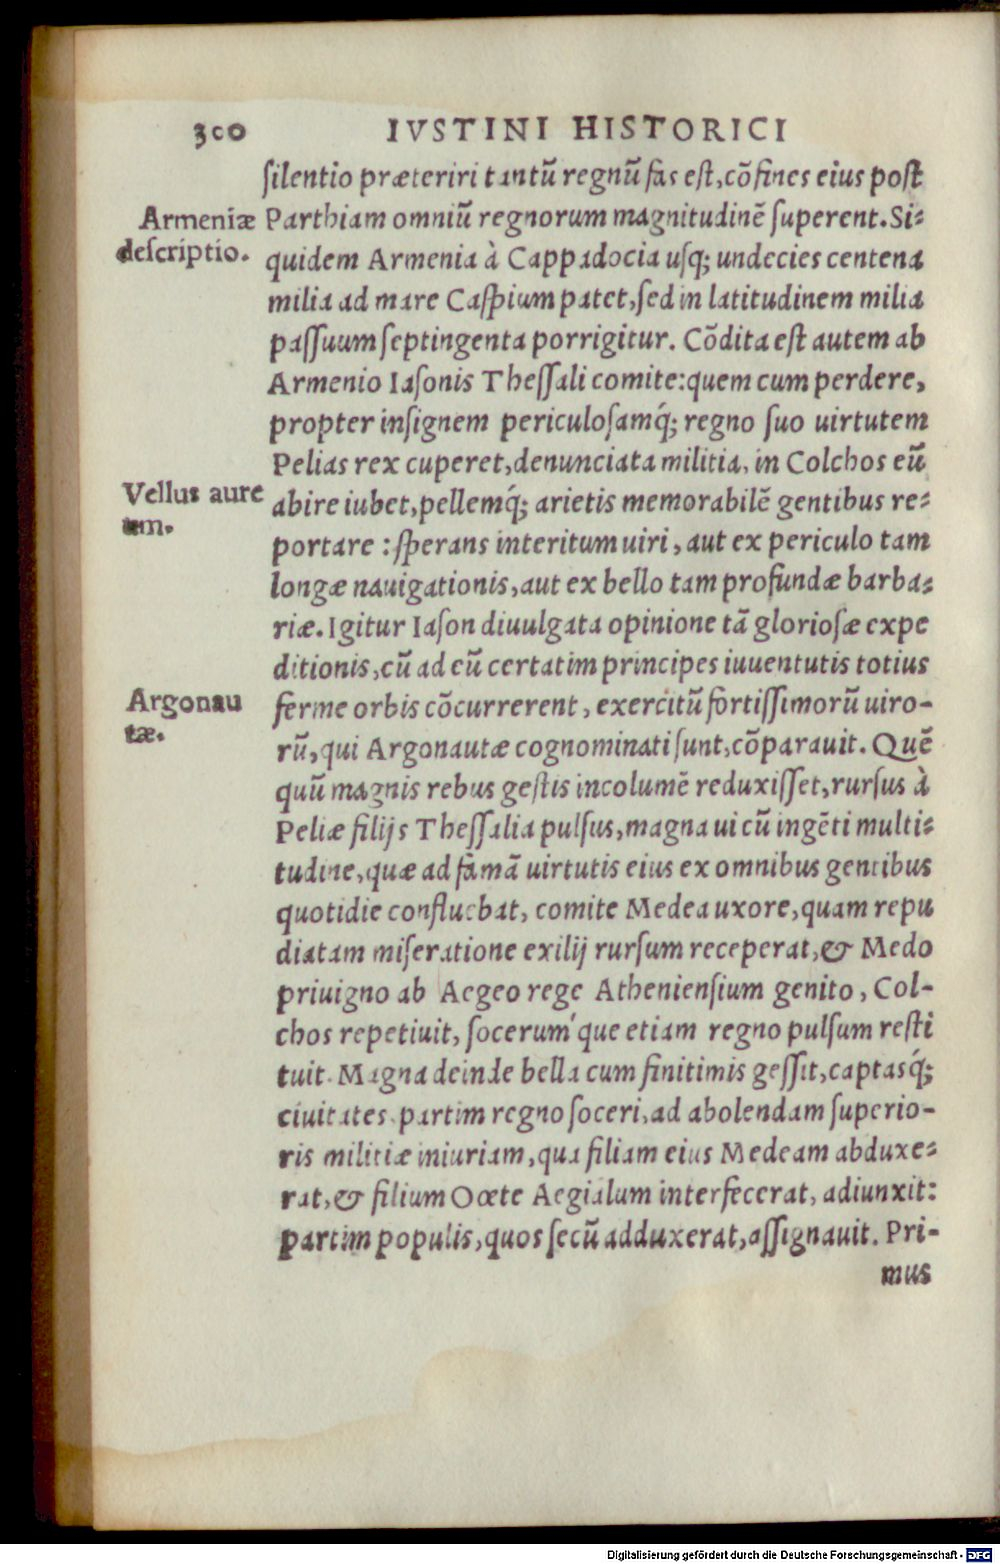 300 IVSTINI HISTORICI
silentio præteriri tantū regnū fas est, cō fines eius post
Armeniæ
descriptio.
Parthiam omniū regnorum magnitudinē superent. Si⸗
quidem Armenia à Cappadocia usq; undecies centena
milia ad mare Caspium patet, sed in latitudinem milia
passuum septingenta porrigitur. Cōdita est autem ab
Armenio Iasonis Thessali comite: quem cum perdere,
propter insignem periculosamq́; regno suo uirtutem
Pelias rex cuperet, denunciata militia, in Colchos eū
Vellus aure
um.
abire iubet, pellemq́; arietis memorabilē gentibus re⸗
portare : sperans interitum uiri, aut ex periculo tam
longæ nauigationis, aut ex bello tam profundæ barba⸗
riæ. Igitur Iason diuulgata opinione tā gloriosæ expe
ditionis, cū ad eū certatim principes iuuentutis totius
Argonau
tæ.
ferme orbis cōcurrerent, exercitū fortissimorū uiro-
rū, qui Argonautæ cognominati sunt, cōparauit. Quē
quū magnis rebus gestis incolumē reduxisset, rursus à
Peliæ filijs Thessalia pulsus, magna ui cū ingēti multi⸗
tudine, quæ ad famā uirtutis eius ex omnibus gentibus
quotidie confluebat, comite Medea uxore, quam repu
diatam miseratione exilij rursum receperat, & Medo
priuigno ab Aegeo rege Atheniensium genito, Col-
chos repetiuit, socerum´que etiam regno pulsum resti
tuit. Magna deinde bella cum finitimis gessit, captasq́;
ciuitates partim regno soceri, ad abolendam superio-
ris militiæ iniuriam, qua filiam eius Medeam abduxe⸗
rat, & filium Oœte Aegialum interfecerat, adiunxit:
partim populis, quos secū adduxerat, assignauit. Pri-
mus
Digitalisierung gefördert durch die Deutsche Forschungsgemeinschaft - DFG